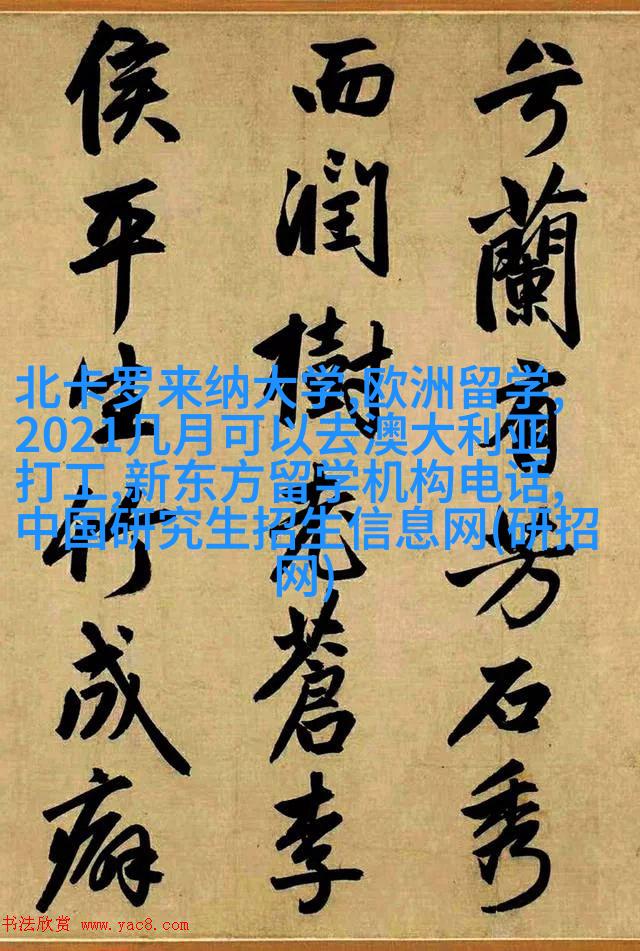 兮蘭有芳石秀
而潤樹老蒼李
侯平生竹成癖
北卡罗来纳大学,欧洲留学,
2021几月可以去澳大利亚
打工,新东方留学机构电话,
中国研究生招生信息网(研招
网)
书法欣赏 www.yac8.com